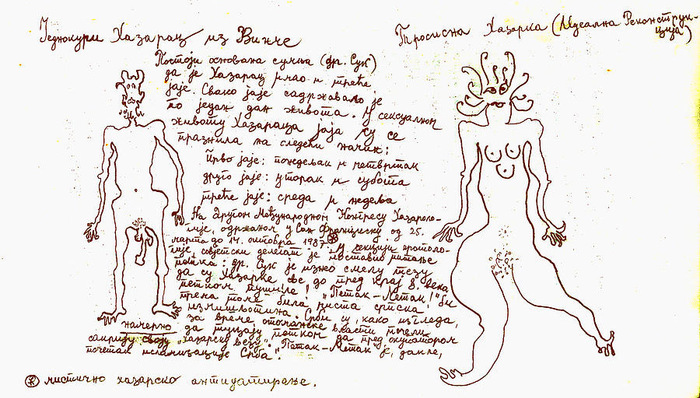 Једнокури Хазарац из Винче
Просисна Хазарка (Идеална Реконструкција)
Постоји основана сумња (др. Сук)
да је Хазарац имао и треће
јаје. Свако јаје садржавало је
по један дан живота. У сексуалном
животу Хазараца јаја су се
празнила на следећи начин:
прво јаје: понедељак и четвртак
друго јаје: уторак и субота
треће јаје: среда и недеља
На другом Међународном Конгресу Хазароло-
гије, одржаном у Сан Франциску од 25.
марта до 14. октобра 1987 ⊛ у секцији
гије совјетски делегат је поставио питање
петка: др. Сук је изнео смелу тезу
да су Хазарке све до пред крај 8. века
петком пушиле! "Петак-Метак!" би
према томе била чиста српска
измишљотина. Срби су, како изгледа,
за време отоманске власти почели
намерно да пуцају петком да пред окупатором
сакрију своју "хазарску везу". "Петак-Метак" је, дакле,
почетак исламизације Срба".
⊛ мистично хазарско антидатирање.